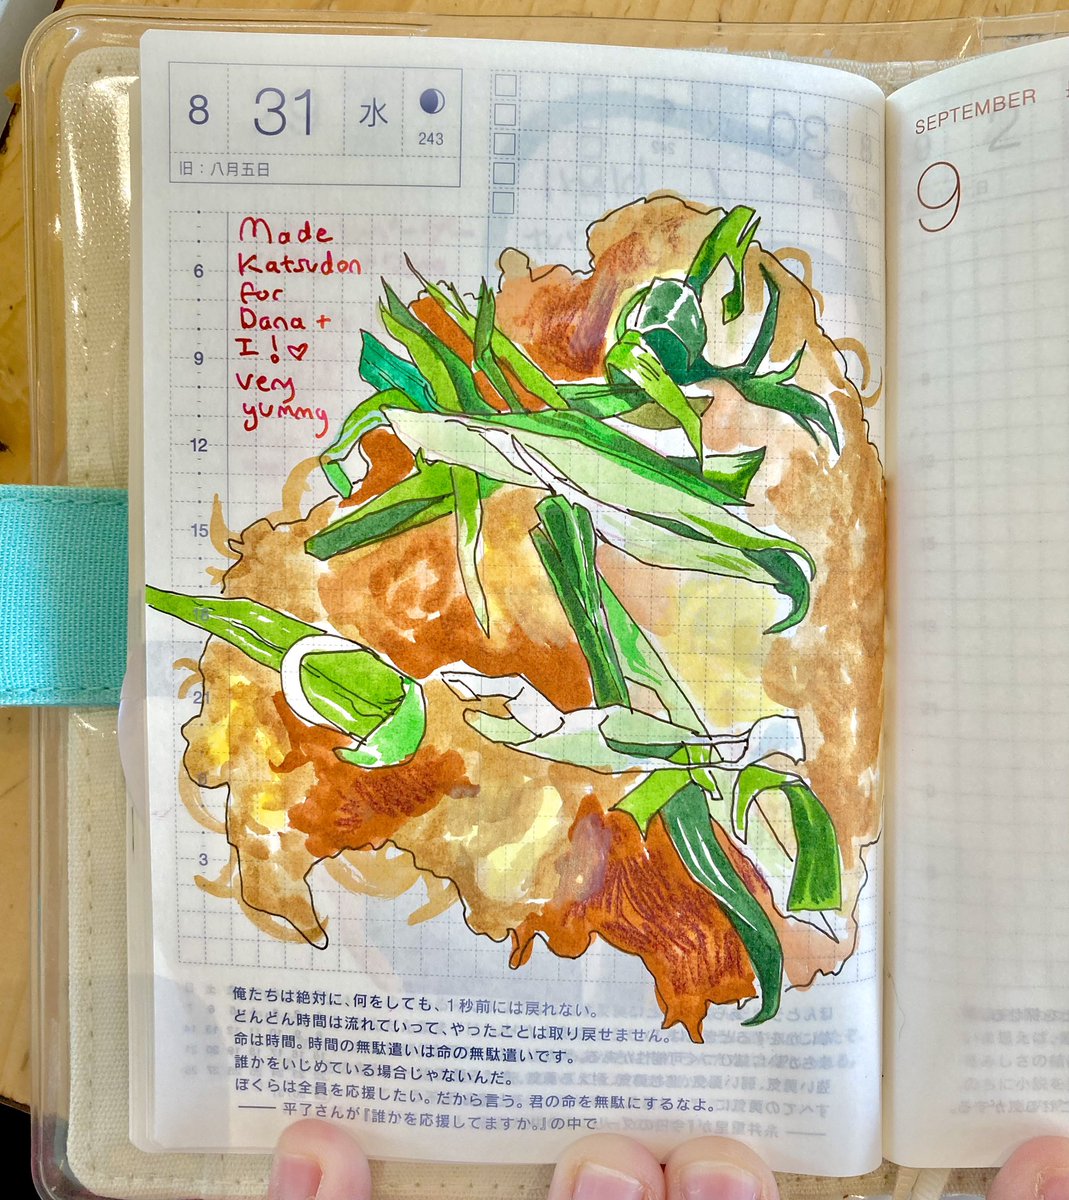 8 31 水
243
旧：八月五日
Made
Katsudon
for
Dana +
I! ♡
very
yummy
6
9
12
15
18
21
3
俺たちは絶対に、何をしても、1秒前には戻れない。
どんどん時間は流れていって、やったことは取り戻せません。
命は時間。時間の無駄遣いは命の無駄遣いです。
誰かをいじめている場合じゃないんだ。
ぼくらは全員を応援したい。だから言う。君の命を無駄にするなよ。
—— 平了さんが『誰かを応援してますか。』の中で
SEPTEMBER
9